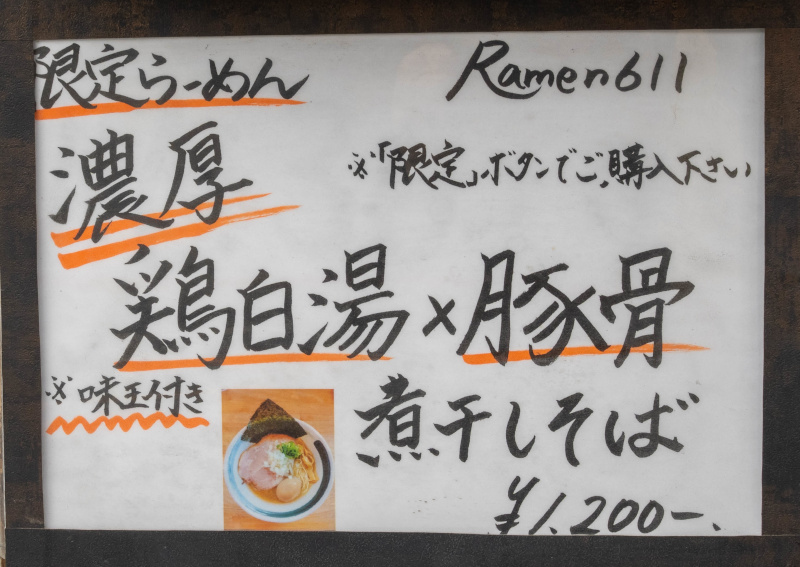 限定らーめん
Ramen611
濃厚
※「限定」ボタンでご購入下さい
鶏白湯×豚骨
※味玉付き
煮干しそば
¥1,200-.